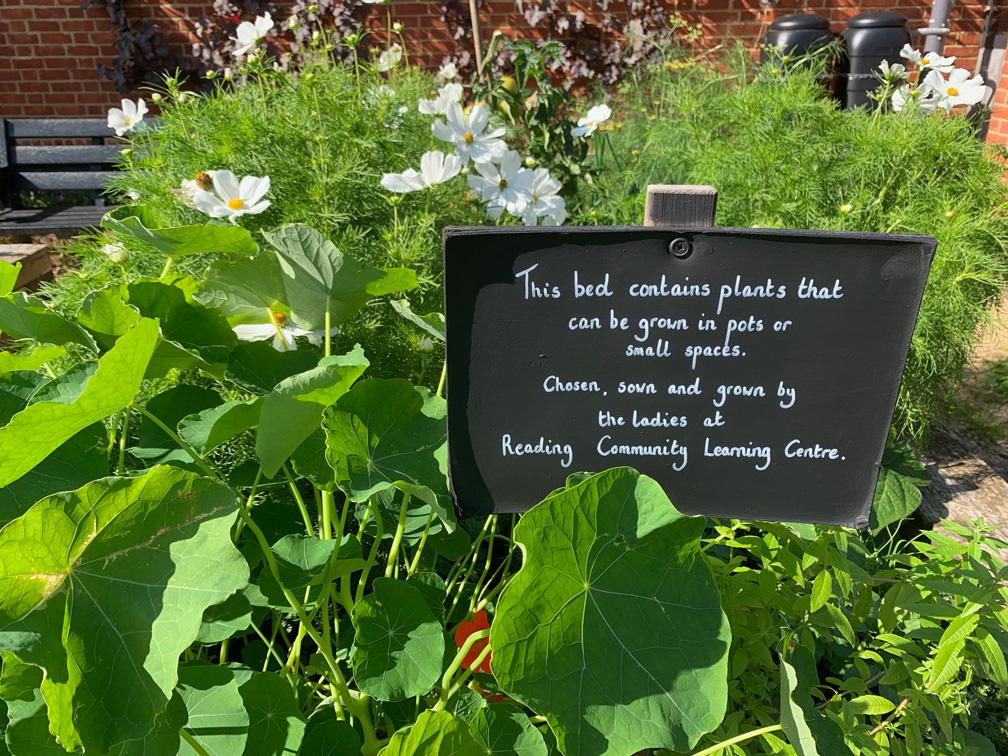 This bed contains plants that
can be grown in pots or
small spaces.
Chosen, sown and grown by
the ladies at
Reading Community Learning Centre.